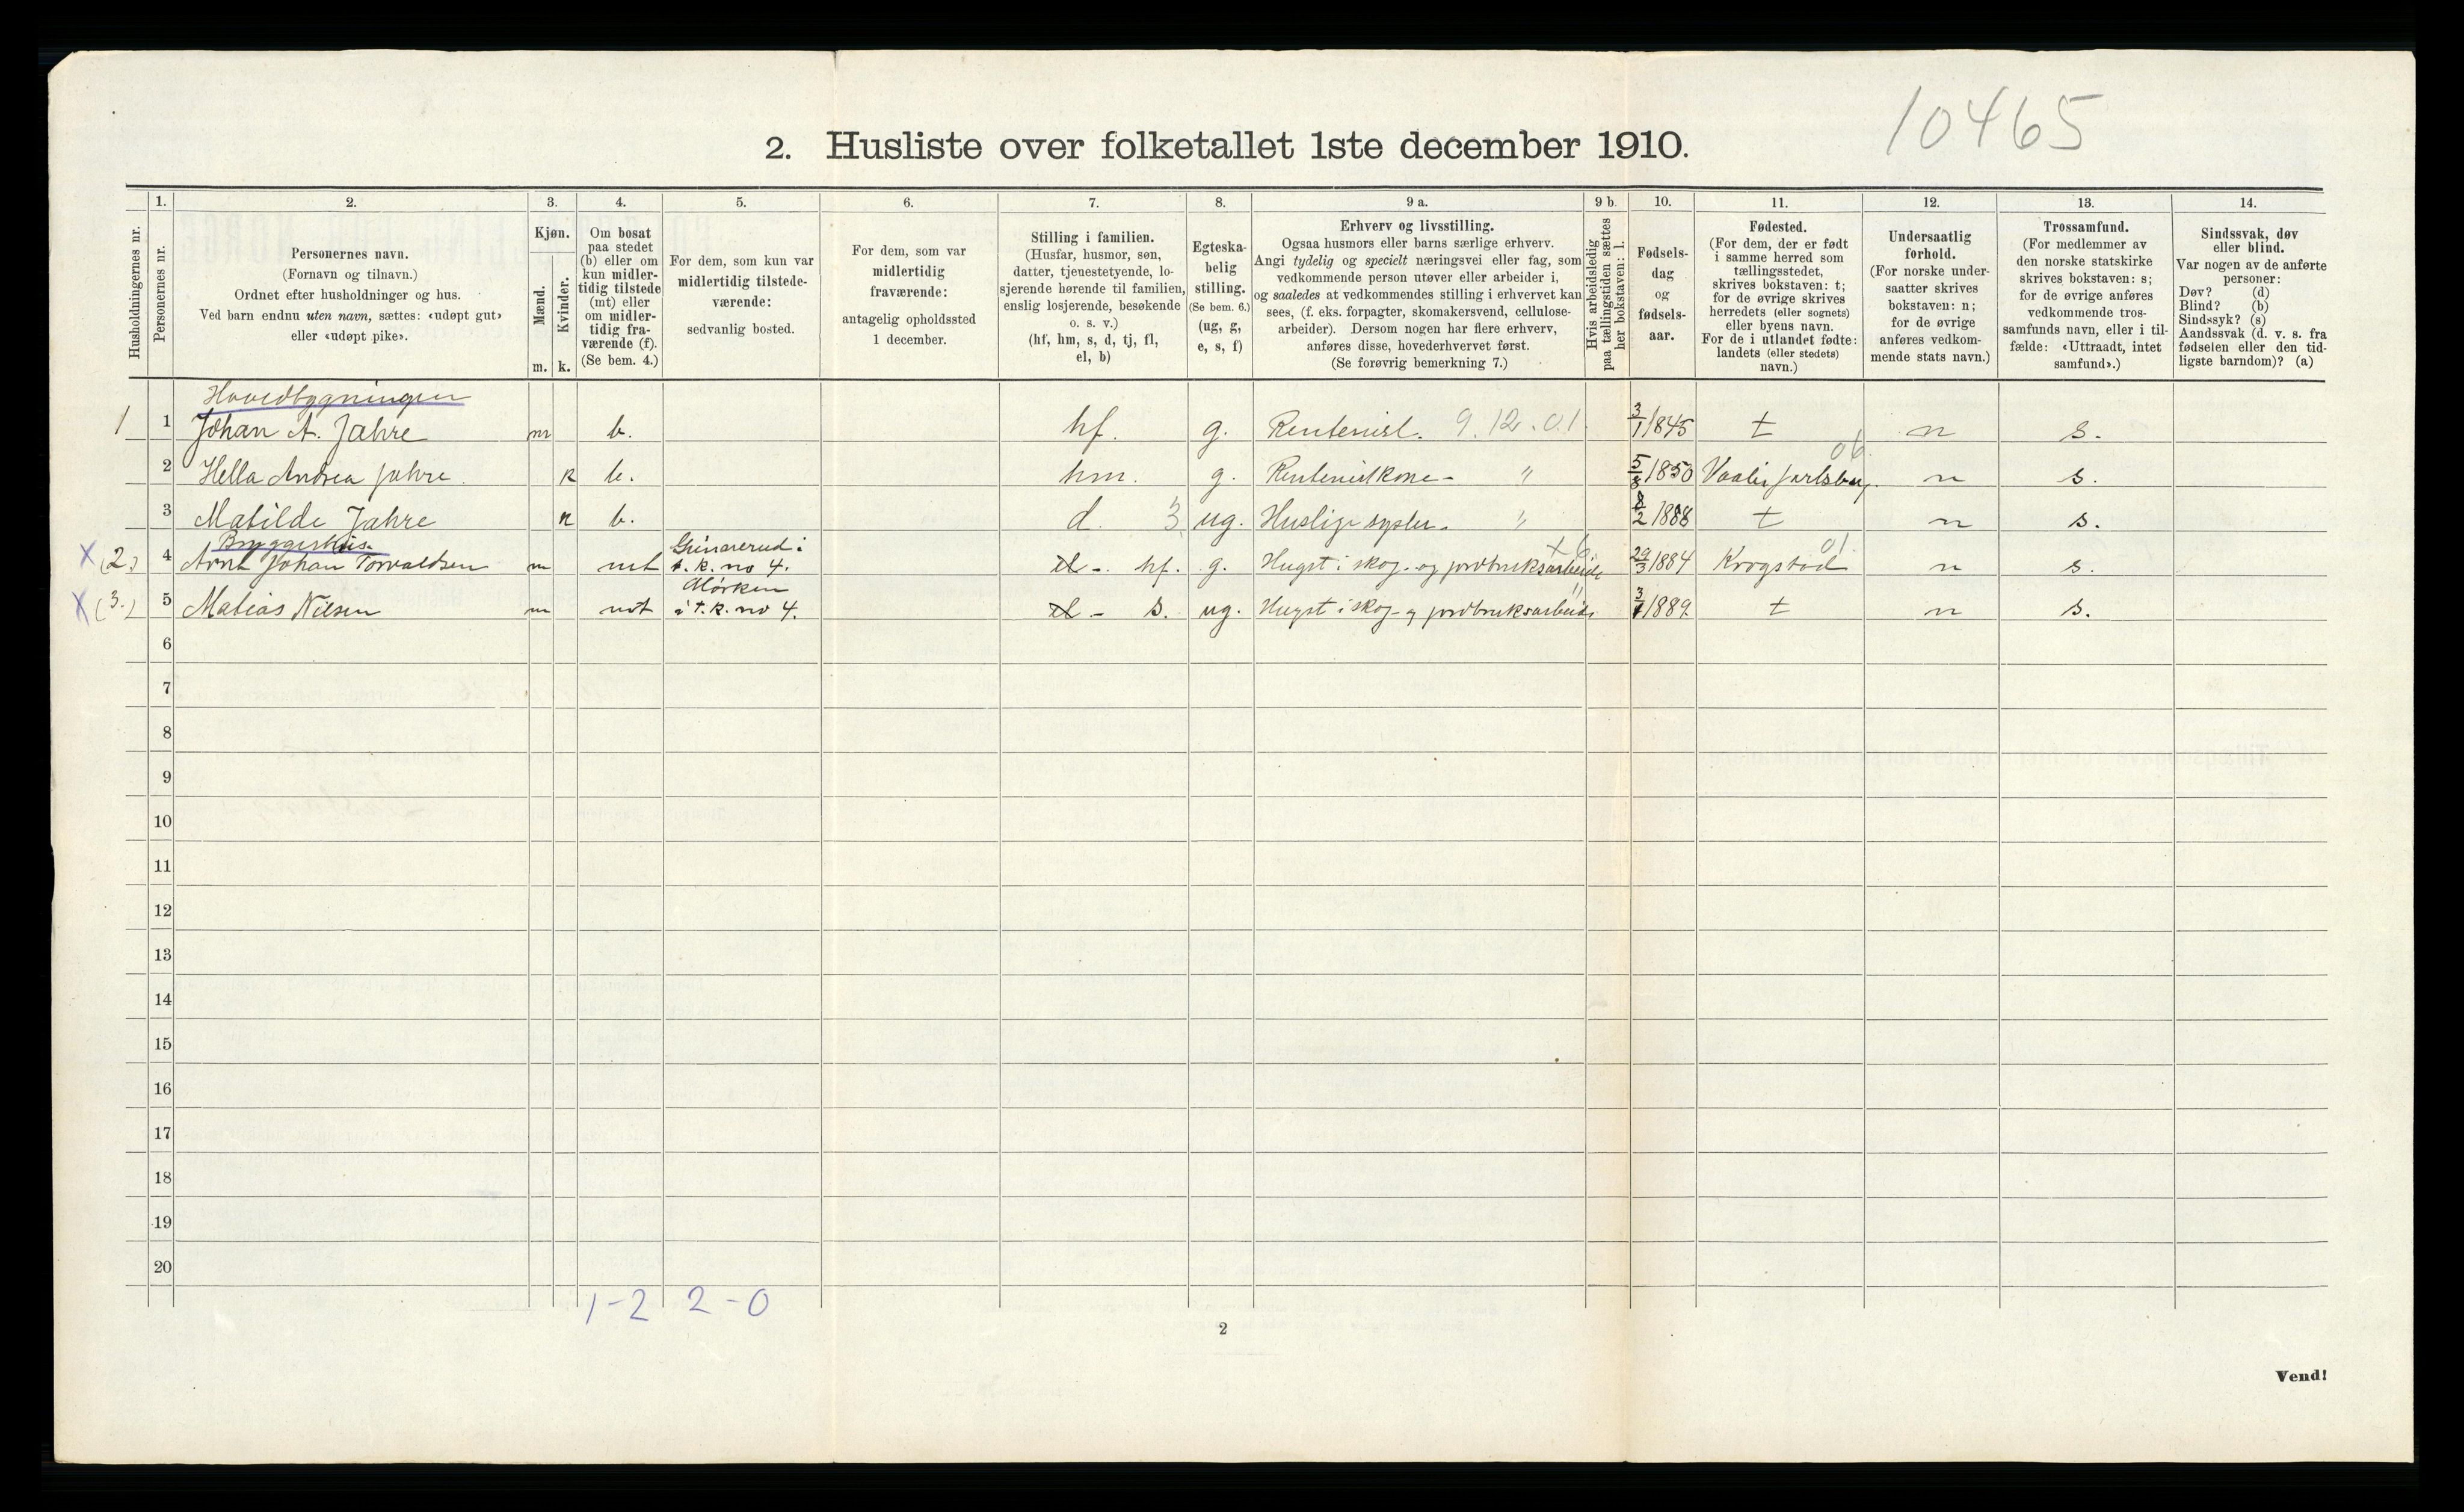 10465
2. Husliste over folketallet 1ste december 1910.
Husholdningernes nr.
1.
Personernes nr.
2.
Personernes navn.
(Fornavn og tilnavn.)
Ordnet efter husholdninger og hus.
Ved barn endnu uten navn, sættes: «udøpt gut»
eller «udøpt pike».
3.
Kjøn.
Mænd.
Kvinder.
m. k.
4.
Om bosat
paa stedet
(b) eller om
kun midler-
tidig tilstede
(mt) eller
om midler-
tidig fra-
værende (f).
(Se bem. 4.)
5.
For dem, som kun var
midlertidig tilstede-
værende:
sedvanlig bosted.
6.
For dem, som var
midlertidig
fraværende:
antagelig opholdssted
1 december.
7.
Stilling i familien.
(Husfar, husmor, søn,
datter, tjenestetyende, lo-
sjerende hørende til familien,
enslig losjerende, besøkende
o. s. v.)
(hf, hm, s, d, tj, fl,
el, b)
8.
Egteska-
belig
stilling.
(Se bem. 6.)
(ug, g,
e, s, f)
9 a.
Erhverv og livsstilling.
Ogsaa husmors eller barns særlige erhverv.
Angi tydelig og specielt næringsvei eller fag, som
vedkommende person utøver eller arbeider i,
og saaledes at vedkommendes stilling i erhvervet kan
sees, (f. eks. forpagter, skomakersvend, cellulose-
arbeider). Dersom nogen har flere erhverv,
anføres disse, hovederhvervet først.
(Se forøvrig bemerkning 7.)
9 b.
Hvis arbeidsledig
paa tællingstiden sættes
her bokstaven: l.
10.
Fødsels-
dag
og
fødsels-
aar.
11.
Fødested.
(For dem, der er født
i samme herred som
tællingsstedet,
skrives bokstaven: t;
for de øvrige skrives
herredets (eller sognets)
eller byens navn.
For de i utlandet fødte:
landets (eller stedets)
navn.)
12.
Undersaatlig
forhold.
(For norske under-
saatter skrives
bokstaven: n;
for de øvrige
anføres vedkom-
mende stats navn.)
13.
Trossamfund.
(For medlemmer av
den norske statskirke
skrives bokstaven: s;
for de øvrige anføres
vedkommende tros-
samfunds navn, eller i til-
fælde: «Uttraadt, intet
samfund».)
14.
Sindssvak, døv
eller blind.
Var nogen av de anførte
personer:
Døv? (d)
Blind? (b)
Sindssyk? (s)
Aandssvak (d. v. s. fra
fødselen eller den tid-
ligste barndom)? (a)
Hovedbygningen
1 1 Johan A. Jahre m b. hf. g. Rentenist. 9.12.01 3/1 1845 t n s.
2 Hella Andrea Jahre. k b. hm. g. Rentenistkone - " 5/8 1850 Vaale Jarlsberg 06 n s.
3 Matilde Jahre k b. d. 3 ug. Huslige sysler. " 8/2 1888 t n s.
Bryggerhus.
x (2.) 4 Arnt Johan Torvaldsen m mt i t. k. no 4. el -. hf. g. Hugst i skog- og jordbruksarbeide x 6 29/3 1884 Krogstad 01 n s.
Mørken
x (3.) 5 Matias Nilsen m mt i t. k. no 4. el - s. ug. Hugst i skog- og jordbruksarbeide " 1889. t n s.
6
7
8
9
10
11
12
13
14
15
16
17
18
19
20
1-2 2-0
2
Vend!